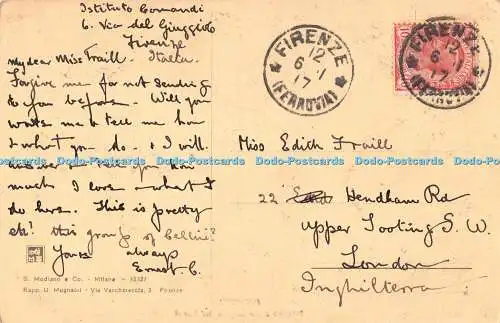 Istituto Comandi
6. Via del
Firenze
Italia
My dear Miss Traill.
Forgive me for not sending
to you before. Will you
write me & tell me how
& what you do. & I will
answer & tell you how
much I love what I
do here. This is pretty
eh? this group of Bellini?
Yours always
Ernest. C.
S. Modiano e Co. - Milano - 10127
Rapp. U. Mugnaini - Via Vacchereccia, 3 Firenze
FIRENZE
12
6 - 1
17
(FERROVIA)
12
6
17
(FERROVIA)
Miss Edith Traill
22 Hendham Rd
Upper Tooting S. W.
London
Inghilterra
Dodo-Postcards Dodo-Postcards Dodo-Postcards Dodo-Postcards Dodo-Postcards